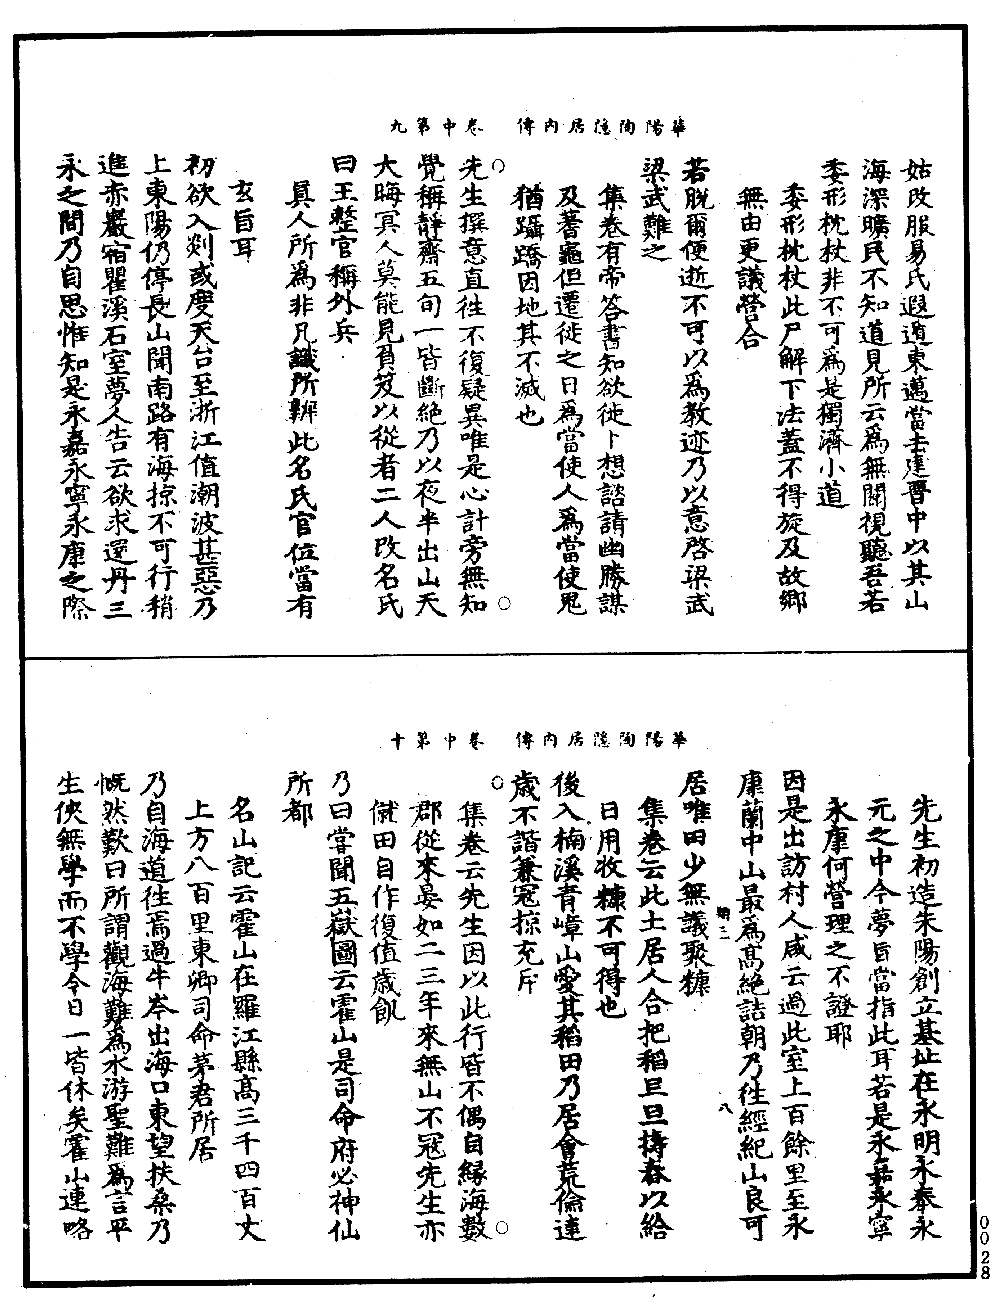 華陽陶隱居內傳　卷中第九
姑改服易氏遐遁東邁當去建晉中以其山
海深曠民不知道見所云為無關視聽吾若
委形枕杖非不可為是獨濟小道
委形枕杖此尸解下法蓋不得旋及故鄉
無由更議營合
若脫爾便逝不可以為教迹乃以意啓梁武
梁武難之
集卷有帝答書知欲徙卜想諮請幽勝謀
及蓍龜但遷徙之日為當使人為當使鬼
猶躡蹻因地其不滅也
先生撰意直往不復疑異唯是心計旁無知
覺稱靜齋五旬一皆斷絕乃以夜半出山天
大晦冥人莫能見負笈以從者二人改名氏
曰王整官稱外兵
真人所為非凡識所辨此名氏官位當有
玄旨耳
初欲入剡或度天台至浙江值潮波甚惡乃
上東陽仍停長山聞南路有海掠不可行稍
進赤巖宿瞿溪石室夢人告云欲求還丹三
永之間乃自思惟知是永嘉永寧永康之際
華陽陶隱居內傳　卷中第十
先生初造朱陽創立基址在永明永泰永
元之中今夢旨當指此耳若是永嘉永寧
永康何營理之不證耶
因是出訪村人咸云過此室上百餘里至永
康蘭中山最為高絕詰朝乃往經紀山良可
居唯田少無議聚糠
集卷云此土居人合把稻旦旦擣舂以給
日用收糠不可得也
後入楠溪青嶂山愛其稻田乃居會荒儉連
歲不諧兼寇掠充斥
集卷云先生因以此行皆不偶自緣海數
郡從來晏如二三年來無山不寇先生亦
僦田自作復值歲飢
乃曰嘗聞五嶽圖云霍山是司命府必神仙
所都
名山記云霍山在羅江縣高三千四百丈
上方八百里東卿司命茅君所居
乃自海道往焉過牛岑出海口東望扶桑乃
慨然歎曰所謂觀海難為水游聖難為言平
生俠無學而不學今日一皆休矣霍山連略
0028